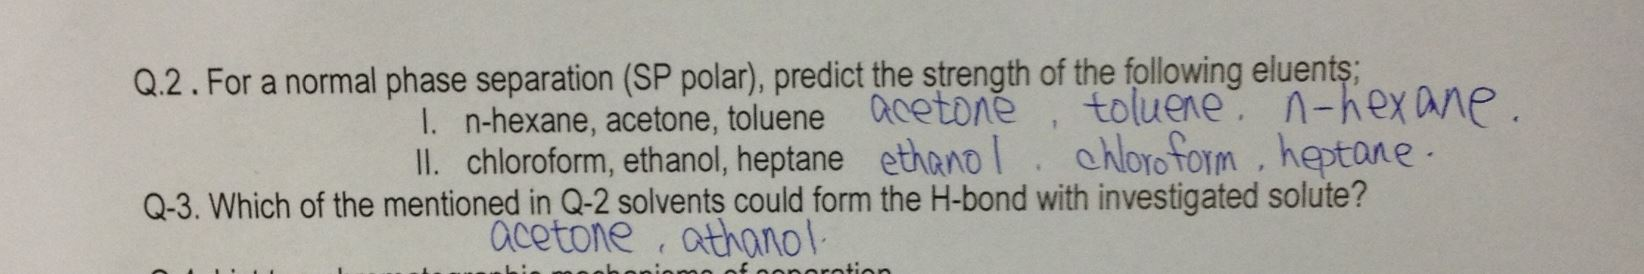 Q.2. For a normal phase separation (SP polar), predict the strength of the following eluents;
I. n-hexane, acetone, toluene acetone, toluene. n-hexane.
II. chloroform, ethanol, heptane ethanol. chloroform, heptane.
Q-3. Which of the mentioned in Q-2 solvents could form the H-bond with investigated solute?
acetone, athanol.